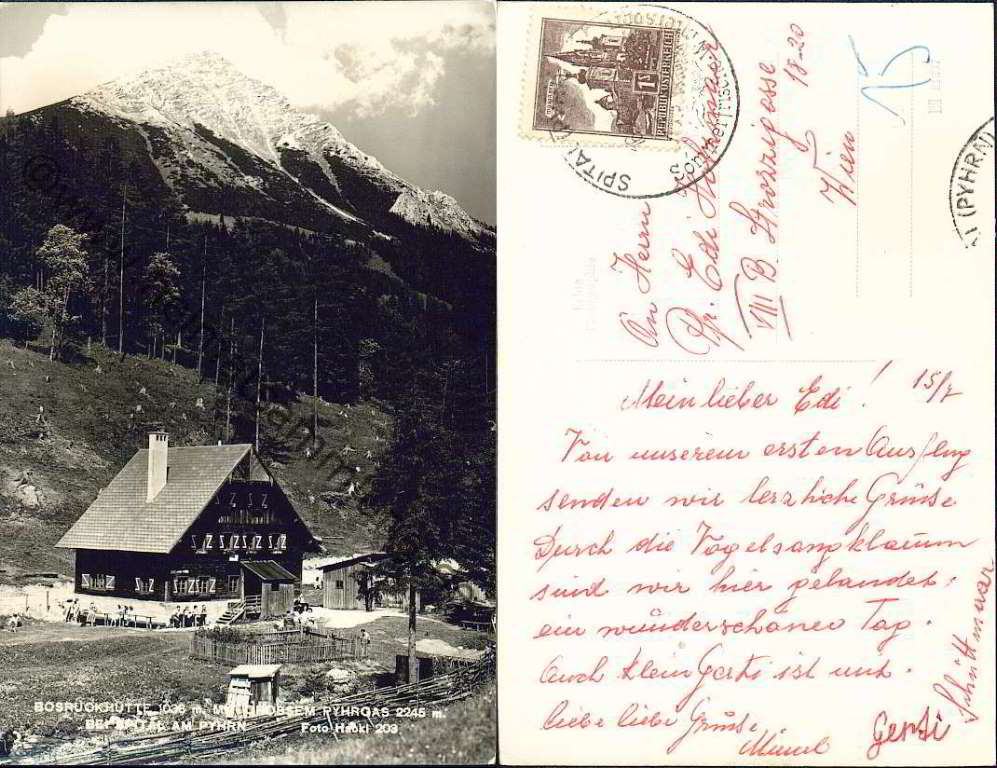 BOSRUCKHÜTTE 1036 m. MIT GROSSEM PYHRGAS 2245 m.
BEI SPITAL AM PYHRN
Foto Hackl 203
REPUBLIK ÖSTERREICH
SPITAL
(PYHRN)
15
An Herrn
Edi
VIII B Strozzigasse
18-20
Wien
Mein lieber Edi! 15/7
Von unserem ersten Ausflug
senden wir herzliche Grüsse
Durch die Vogelsangklamm
sind wir hier gelandet.
ein wunderschöner Tag.
Auch klein Gerti ist mit.
liebe liebe Grüsse
Gerti